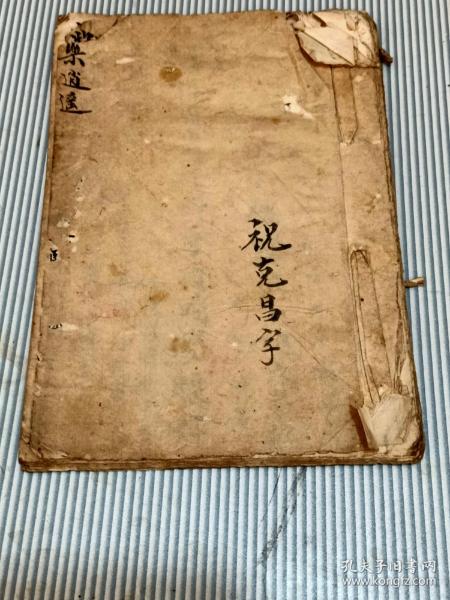 樂逍遙
祝克昌字
孔夫子旧书网
www.kongfz.com